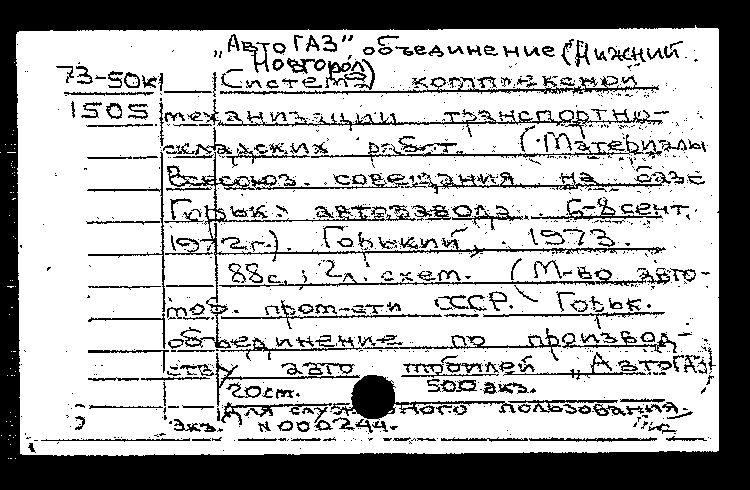 „АвтоГАЗ", объединение (Нижний
Новгород)
73-50к Система комплексной
1505 механизации транспортно-
складских работ. (Материалы
Всесоюз. совещания на базе
Горьк. автозавода. 6-8 сент.
1972 г.). Горький, 1973.
88с.; 2л. схем. (М-во авто-
моб. пром-сти СССР. Горьк.
объединение по производ-
ству автомобилей „АвтоГАЗ")
20см. 500 экз.
Для служебного пользования.
Экз. N 000244.